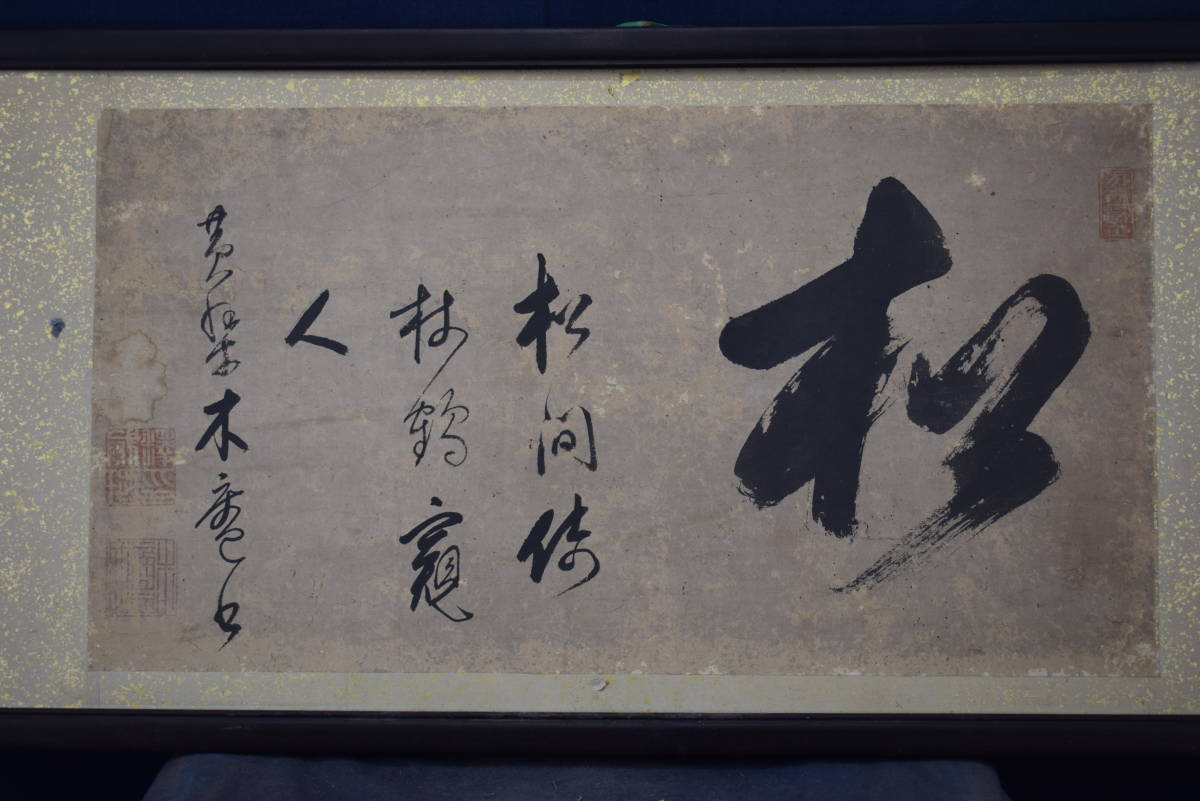 松
松間倚
杖鶴窺
人
黄檗木庵書